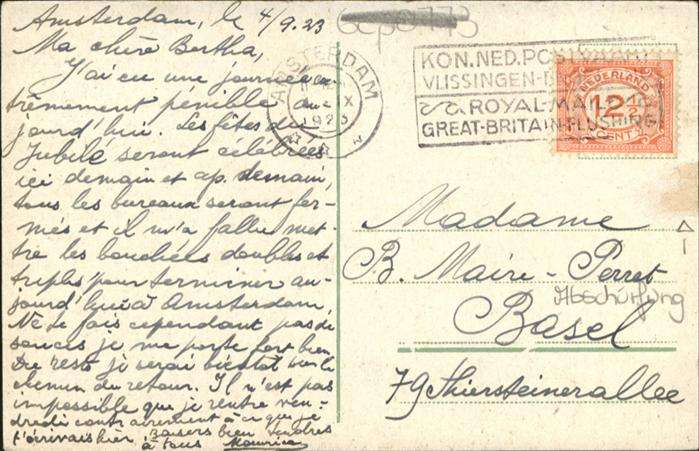 Amsterdam, le 4/9.23
Ma chère Bertha,
J'ai eu une journée ex
trêmement pénible au-
jourd'hui. Les fêtes du
Jubilé seront célébrées
ici demain et ap. demain,
tous les bureaux seront fer-
més et il m'a fallu met-
tre les bouchées doubles et
triples pour terminer au-
jourd'hui à Amsterdam.
Ne te fais cependant pas de
soucis je me porte fort bien
Du reste je serai bientôt sur le
chemin du retour. Il n'est pas
impossible que je rentre ven-
dredi contrairement à ce que je
t'écrivais hier. Baisers bien tendres
à tous Maurice
AMSTERDAM
1923
KON.NED.POST
VLISSINGEN-
ROYAL-MAI
GREAT-BRITAIN-FLUSHING
NEDERLAND
12½
CENT
Madame
B. Maire-Perret
Abschürfung
Basel
79 Thiersteinerallee